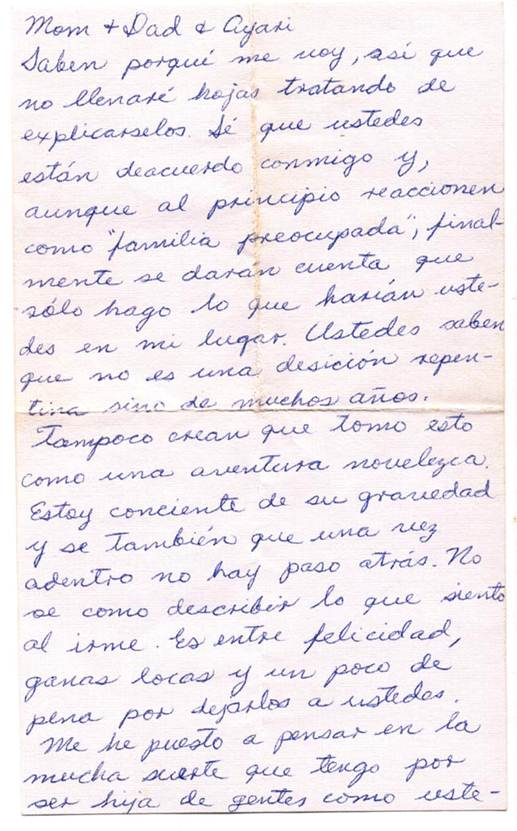 Mom + Dad & Ayari
Saben porqué me voy, así que
no llenaré hojas tratando de
explicarselos. Sé que ustedes
están deacuerdo conmigo y,
aunque al principio reaccionen
como "familia preocupada", final-
mente se darán cuenta que
sólo hago lo que harían uste-
des en mi lugar. Ustedes saben
que no es una desición repen-
tina sino de muchos años.
Tampoco crean que tomo esto
como una aventura novelezca.
Estoy conciente de su gravedad
y se también que una vez
adentro no hay paso atrás. No
se como describir lo que siento
al irme. Es entre felicidad,
ganas locas y un poco de
pena por dejarlos a ustedes.
Me he puesto a pensar en la
mucha suerte que tengo por
ser hija de gentes como uste-